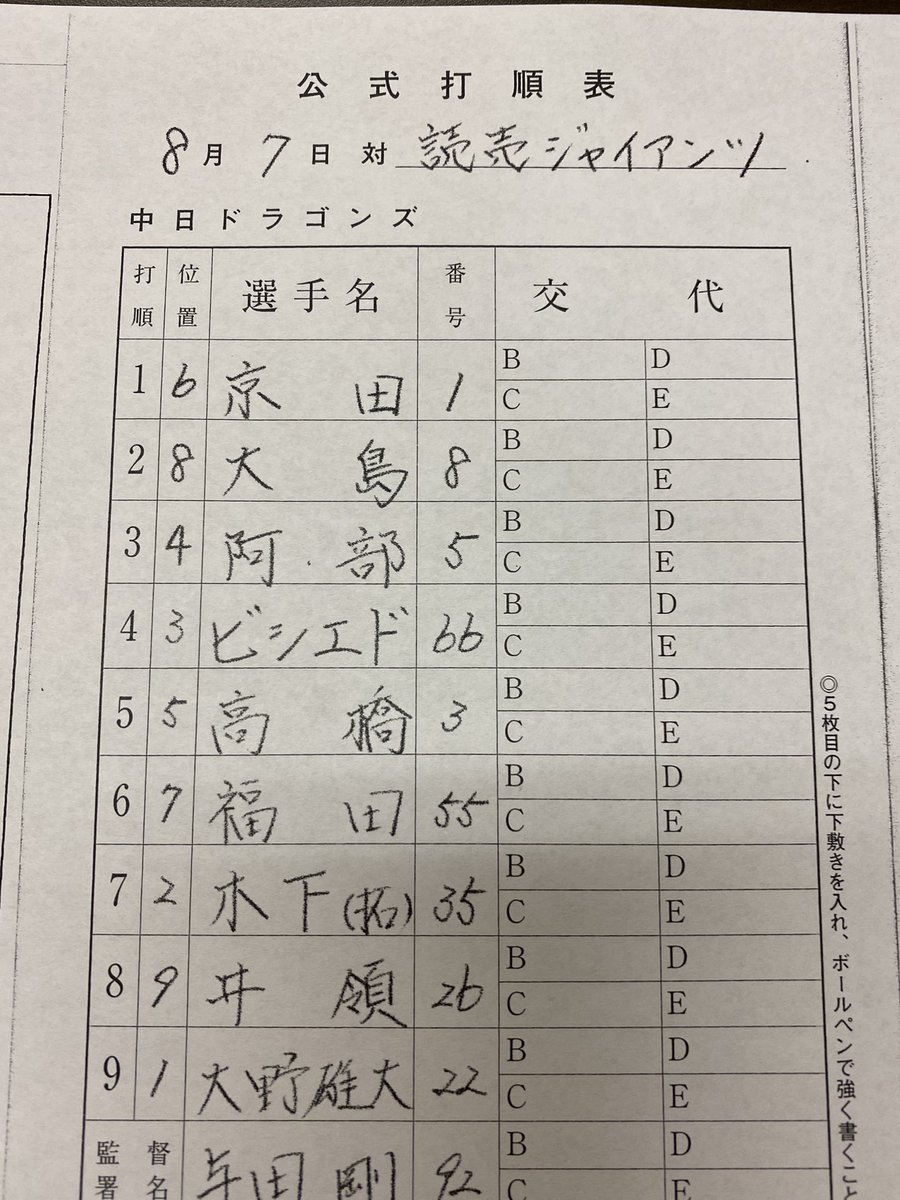 公式打順表
8月7日対 読売ジャイアンツ
中日ドラゴンズ
打順 位置 選手名 番号 交代
1 6 京田 1 B D
C E
2 8 大島 8 B D
C E
3 4 阿部 5 B D
C E
4 3 ビシエド 66 B D
C E
5 5 高橋 3 B D
C E
6 7 福田 55 B D
C E
7 2 木下(拓) 35 B D
C E
8 9 井領 26 B D
C E
9 1 大野雄大 22 B D
C E
監督署名 与田剛 92 B D
C E
◎5枚目の下に下敷きを入れ、ボールペンで強く書くこと